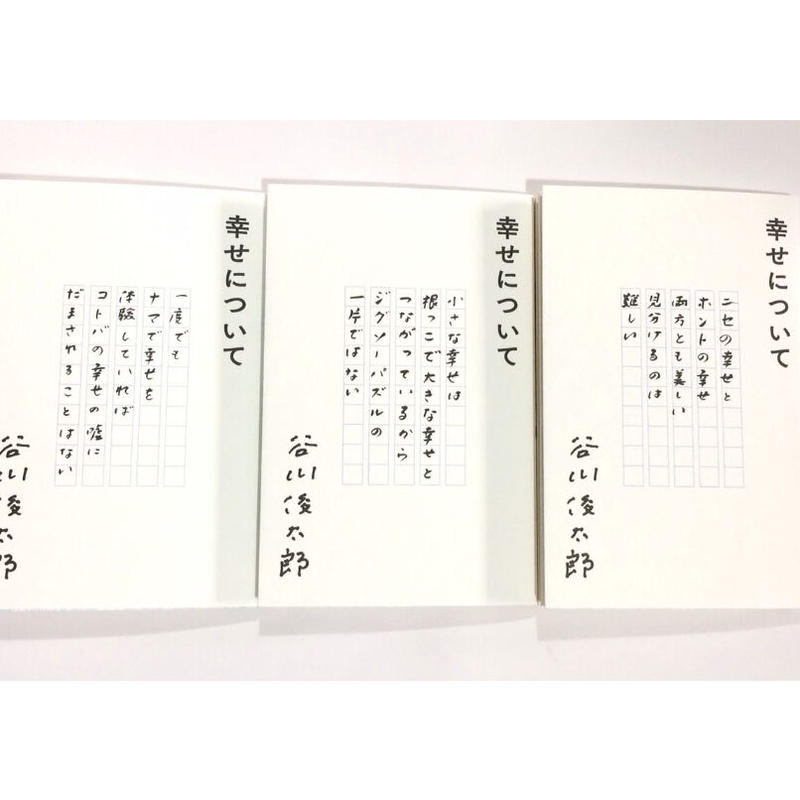 幸せについて
一度でも
ナマで幸せを
体験していれば
コトバの幸せの嘘に
だまされることはない
谷川俊太郎
幸せについて
小さな幸せは
根っこで大きな幸せと
つながっているから
ジグソーパズルの
一片ではない
谷川俊太郎
幸せについて
ニセの幸せと
ホントの幸せ
両方とも美しい
見分けるのは
難しい
谷川俊太郎